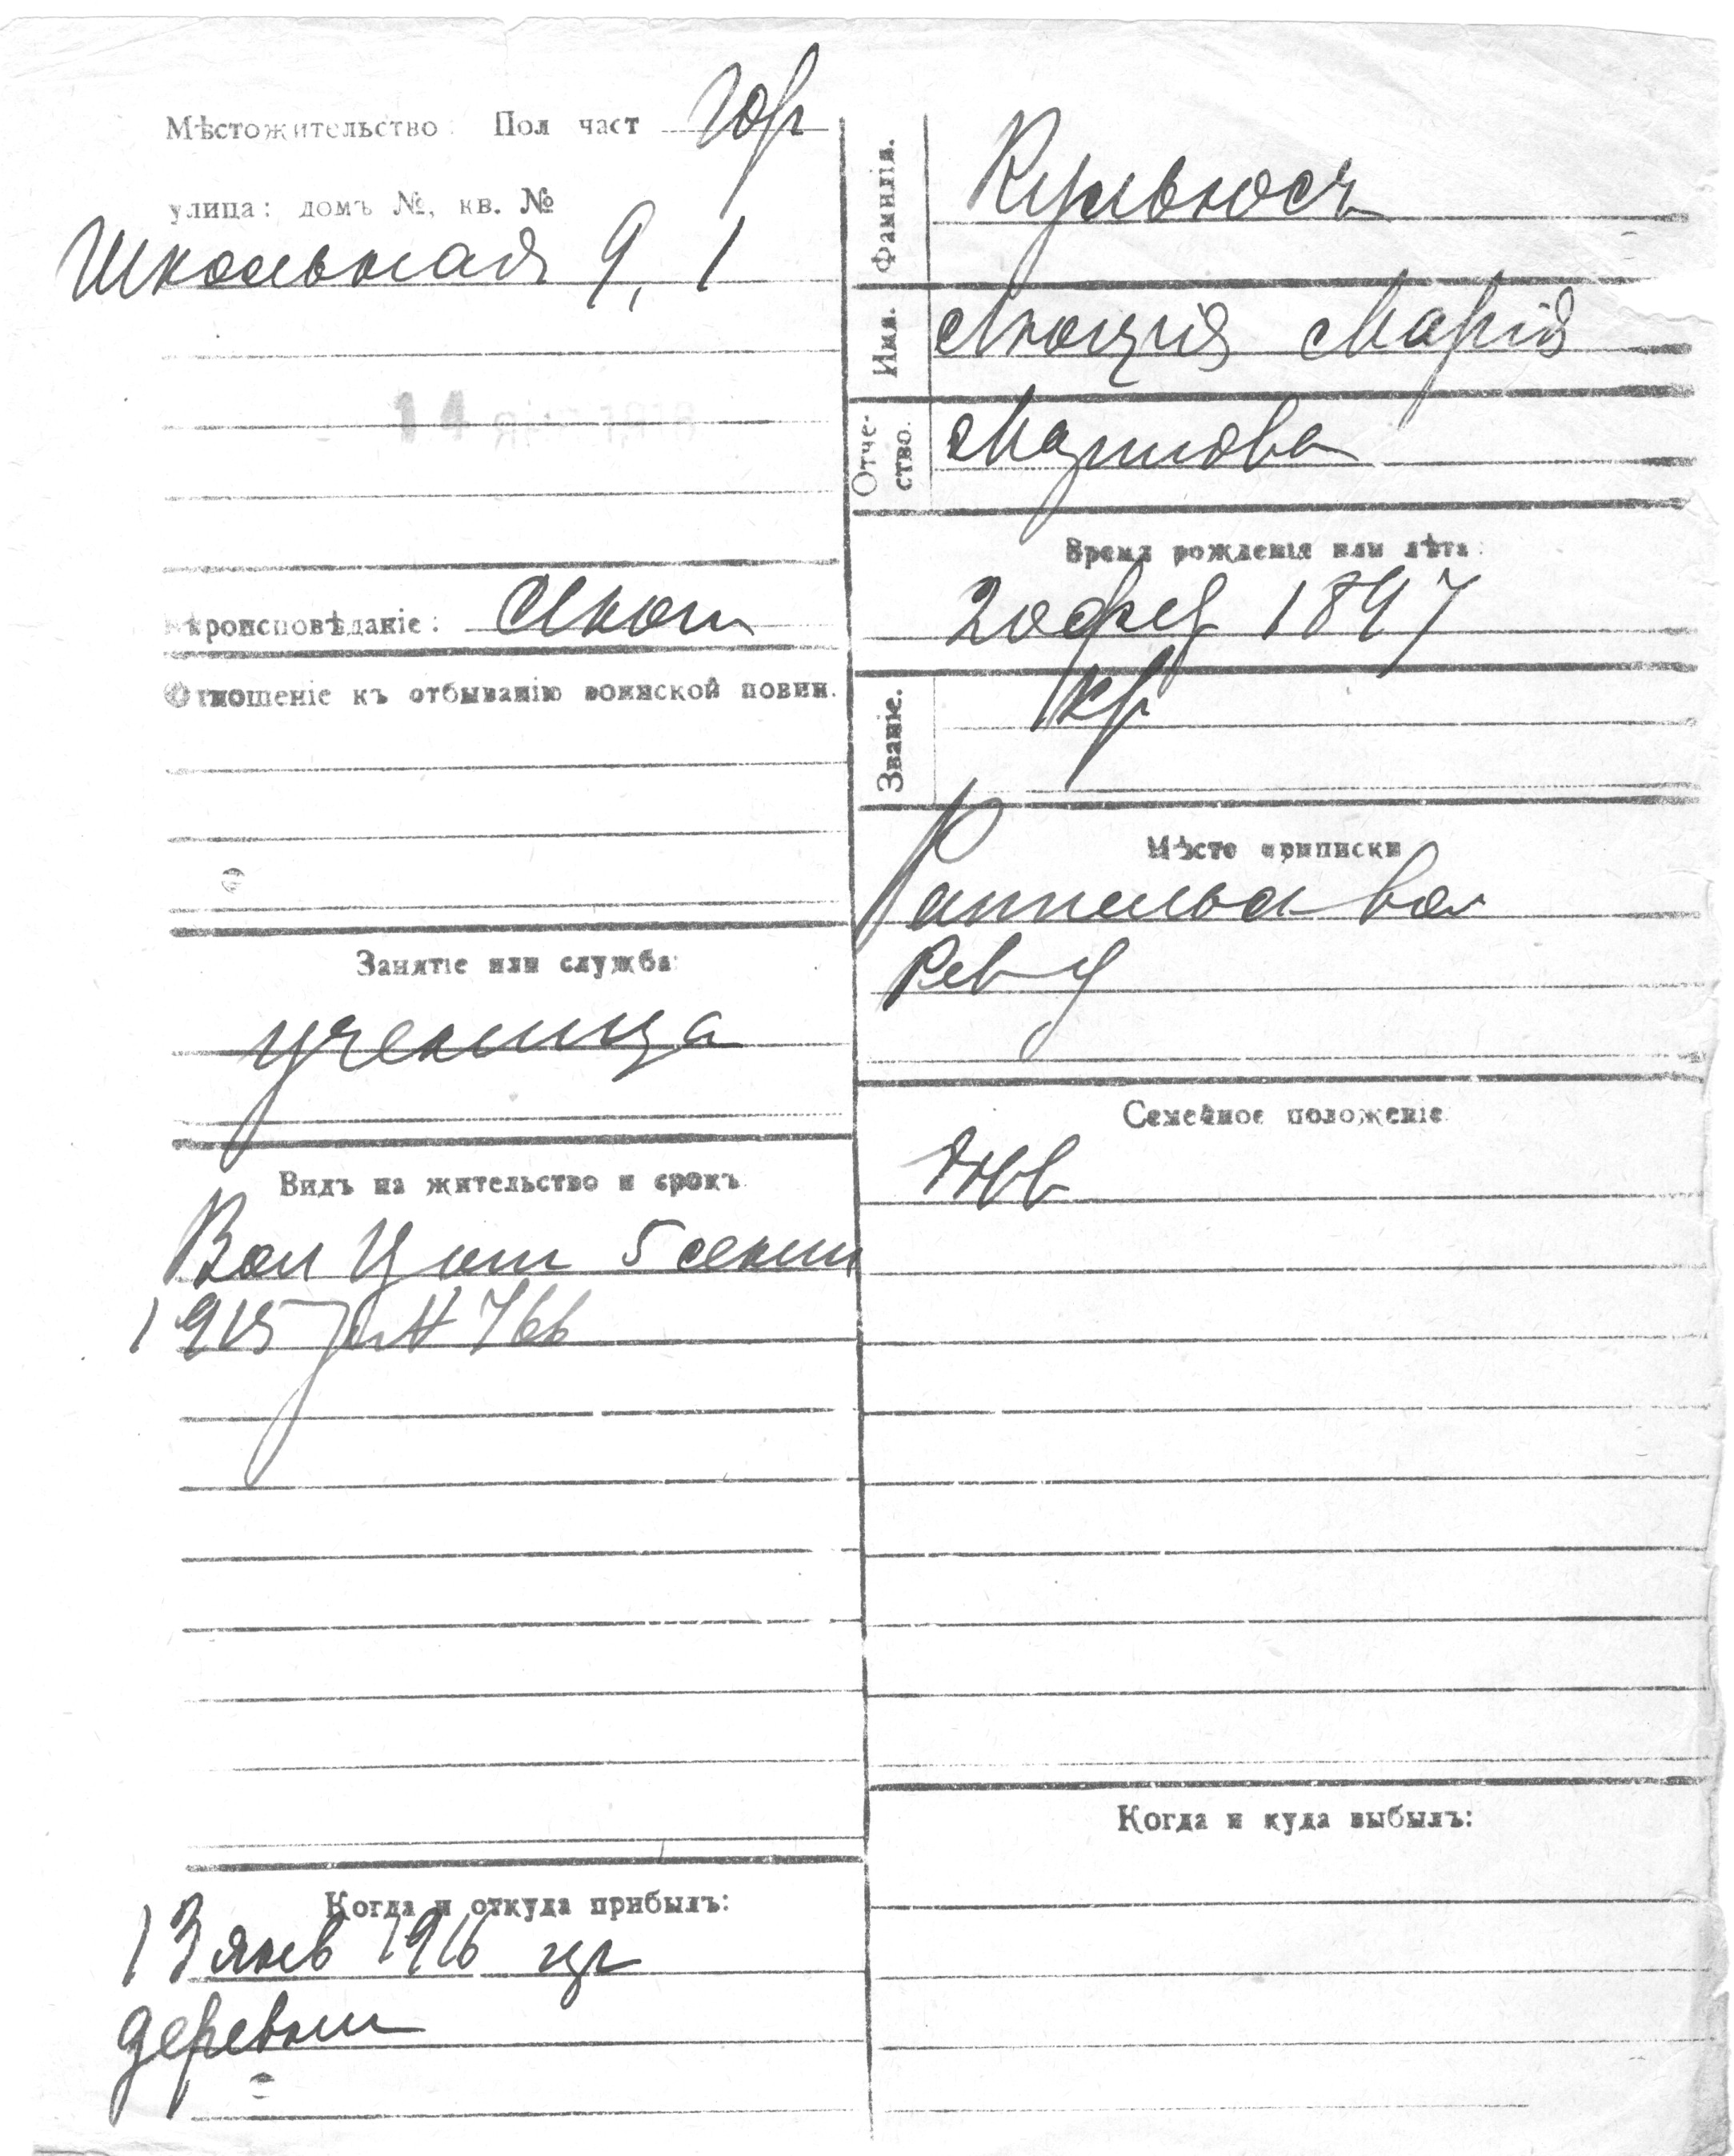 Мѣстожительство: Пол част гор
улица: домъ №, кв. №
Школьная 9, 1
14 янв 1916
Вѣроисповѣданіе: Лют
Отношеніе къ отбыванію воинской повин.
Занятіе или служба:
ученица
Видъ на жительство и срокъ
Вол 5 сент
1915 766
Когда и откуда прибылъ:
13 янв 1916 из
деревни
Фамилія.
Кульюсъ
Имя.
Люція Марія
Отче-
ство.
Время рожденія или лѣта:
20 фев 1897
Званіе.
кр
Мѣсто приписки
Раппельск вол
Рев у
Семейное положеніе
дѣв
Когда и куда выбылъ: